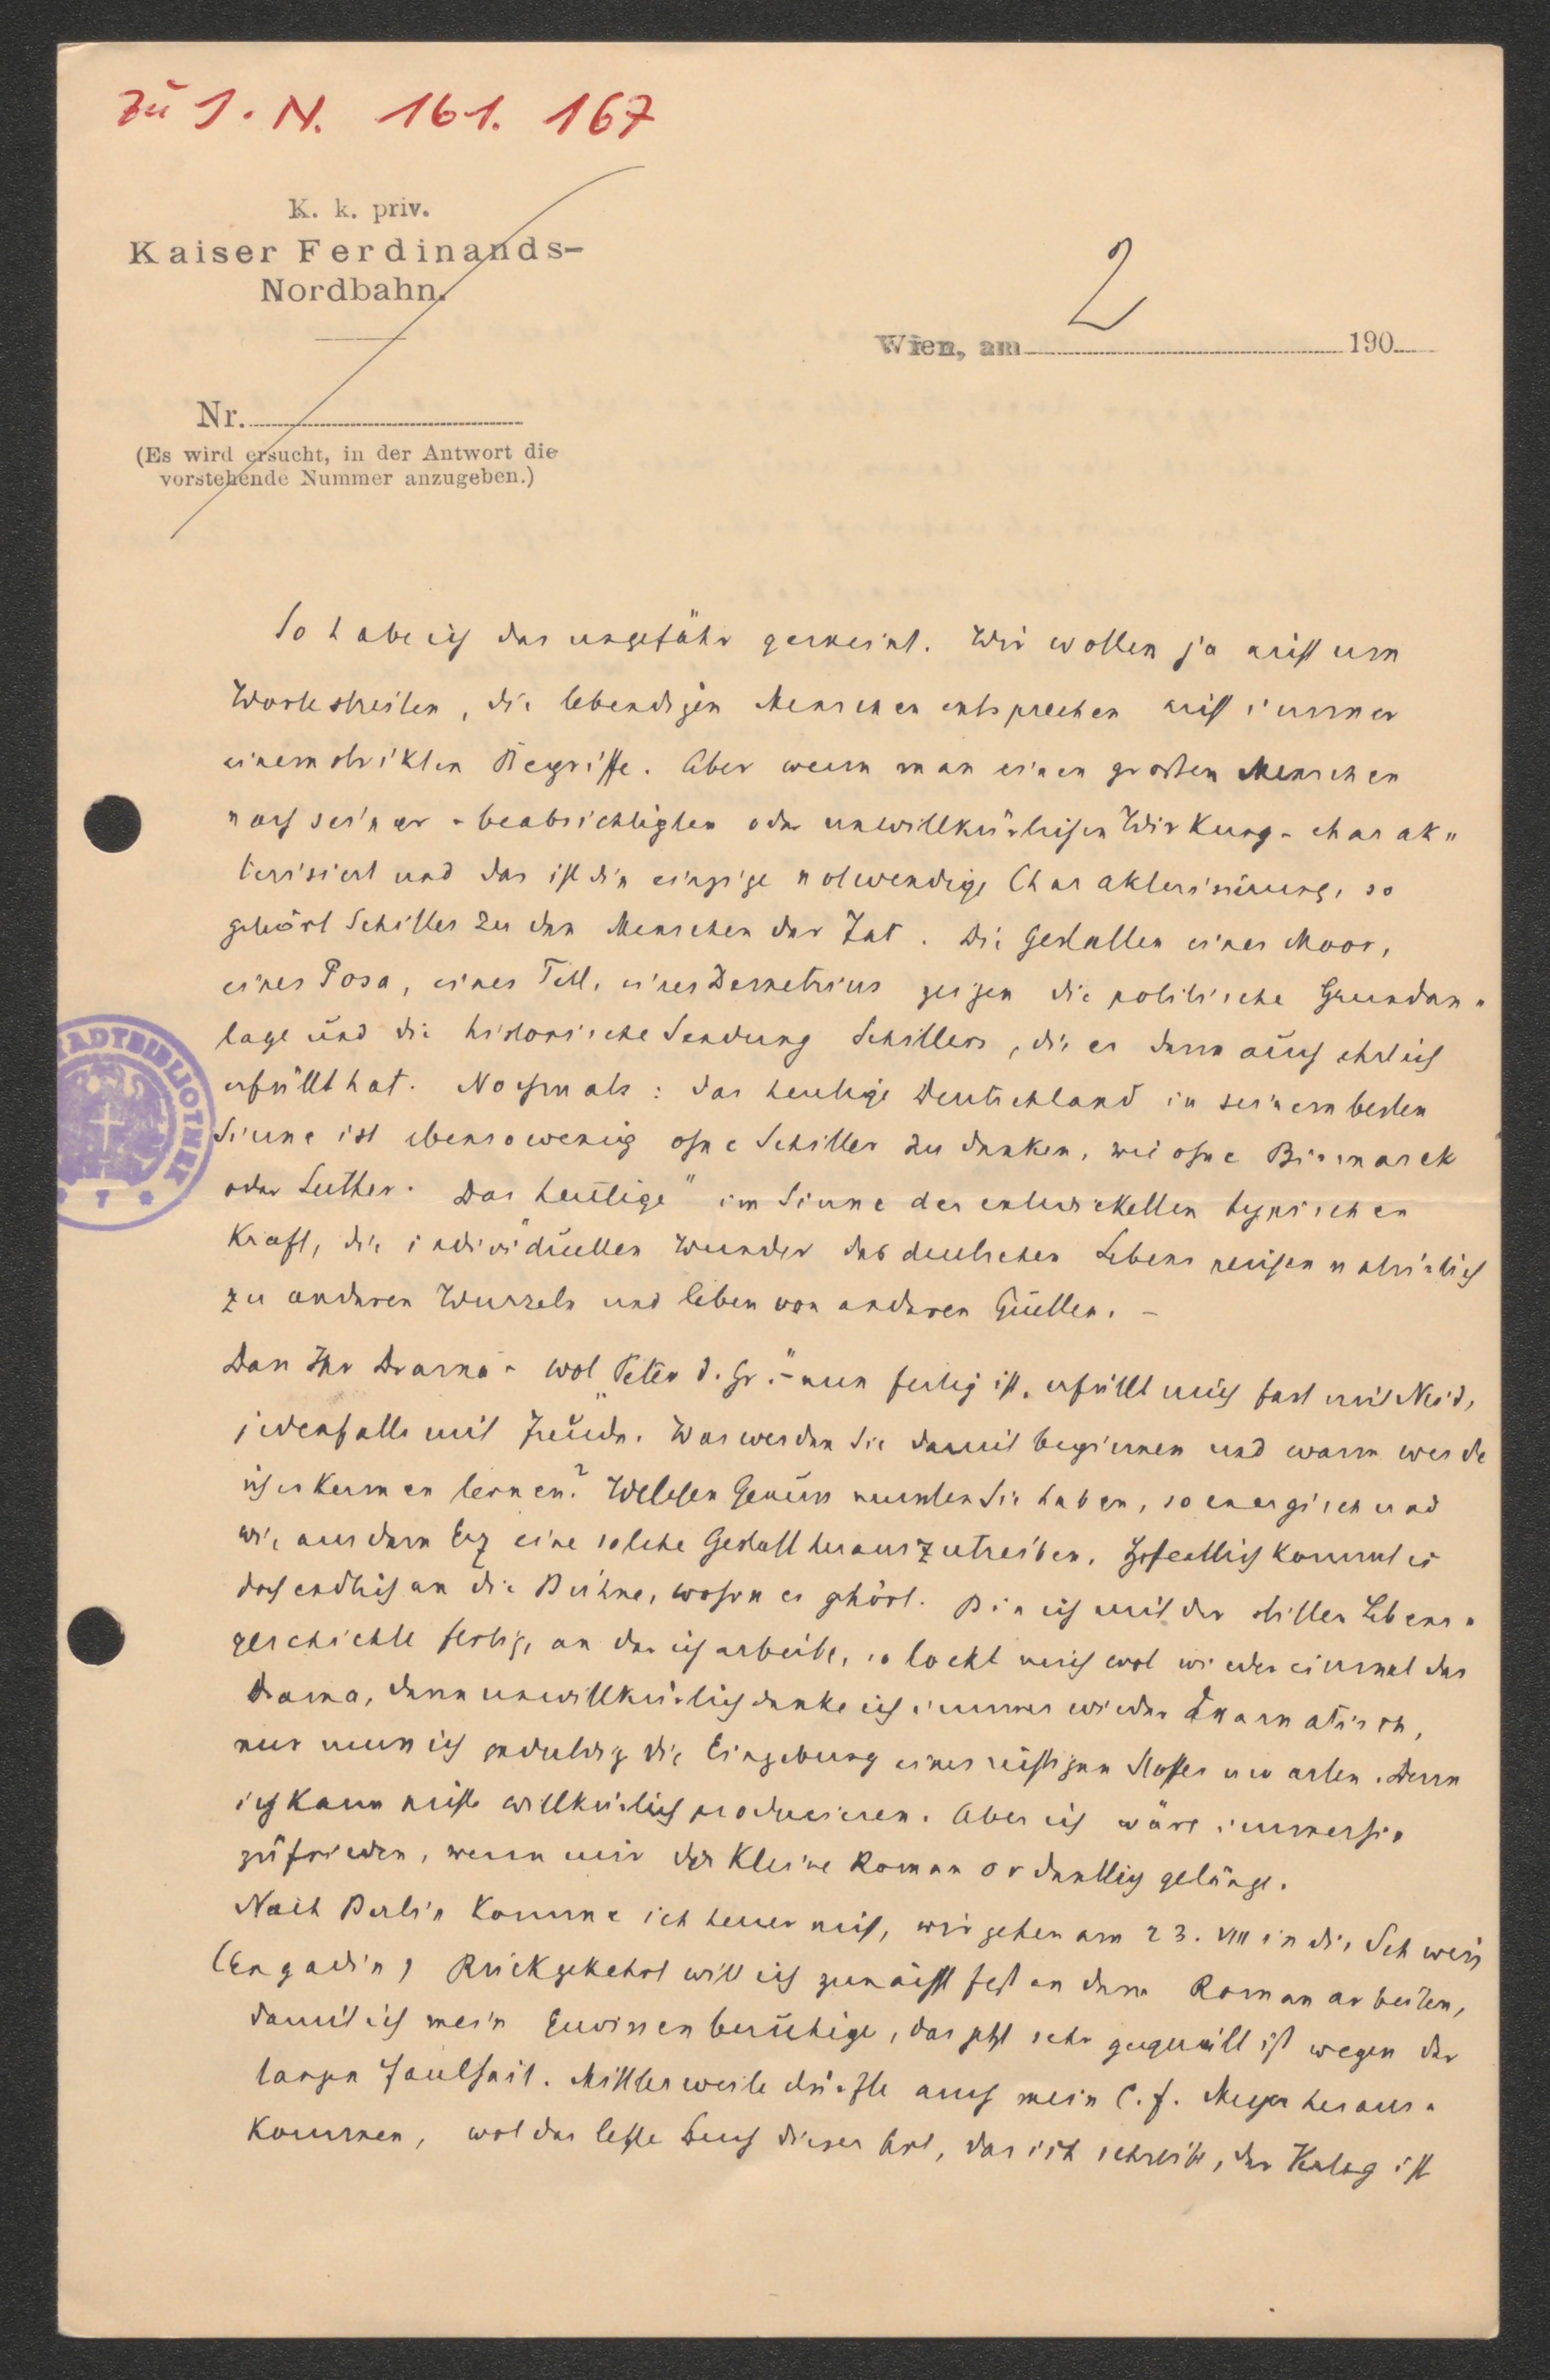 zu I. N. 161.167
K. k. priv.
Kaiser Ferdinands-
Nordbahn.
2
Wien, am 190
Nr.
(Es wird ersucht, in der Antwort die
vorstehende Nummer anzugeben.)
So habe ich das ungefähr gemeint. Wir wollen ja nicht um
Worte streiten, die lebendigen Menschen entsprechen nicht immer
einem strikten Begriffe. Aber wenn man einen großen Menschen
nach seiner - beabsichtigten oder unwillkürlichen Wirkung - charak„
terisiert und das ist die einzige notwendige Charakterisierung, so
gehört Schiller zu den Menschen der Tat. Die Gestalten eines Moor,
eines Posa, eines Tell, eines Demetrius zeigen die politische Grundan„
lage und die historische Sendung Schillers, die er denn auch ehrlich
erfüllt hat. Nochmals: das heutige Deutschland in seinem besten
Sinne ist ebensowenig ohne Schiller zu denken, wie ohne Bismarck
oder Luther. Das heutige" im Sinne der entwickelten typischen
Kraft, die individuellen Wunder des deutschen Lebens reichen natürlich
zu anderen Wurzeln und leben von anderen Quellen. -
Dass Ihr Drama - wol „Peter d. Gr." - nun fertig ist, erfüllt mich fast mit Neid,
jedenfalls mit Freude. Was werden Sie damit beginnen und wann werde
ich es kennen lernen? Welchen Genuss mussten Sie haben, so energisch und
wie aus dem Erz eine solche Gestalt herauszutreiben. Hofentlich kommt es
doch endlich an die Bühne, wohin es gehört. Bin ich mit der stillen Lebens„
geschichte fertig, an der ich arbeite, so lockt mich wol wieder einmal das
Drama, denn unwillkürlich denke ich immer wieder dramatisch,
nur muss ich geduldig die Eingebung eines richtigen Stoffes erwarten. Denn
ich kann nichts willkürlich producieren. Aber ich wäre immerhin
zufrieden, wenn mir der kleine Roman ordentlich gelänge.
Nach Berlin komme ich heuer nicht, wir gehen am 23. VIII in die Schweiz
(Engadin) Rückgekehrt will ich zunächst fest an dem Roman arbeiten,
damit ich mein Gewissen beruhige, das jetzt sehr gequält ist wegen der
langen Faulheit. Mittlerweile dürfte auch mein C. F. Meyer heraus„
kommen, wol das letzte Buch dieser Art, das ich schreibe, der Verlag ist
STADTBIBLIOTHEK